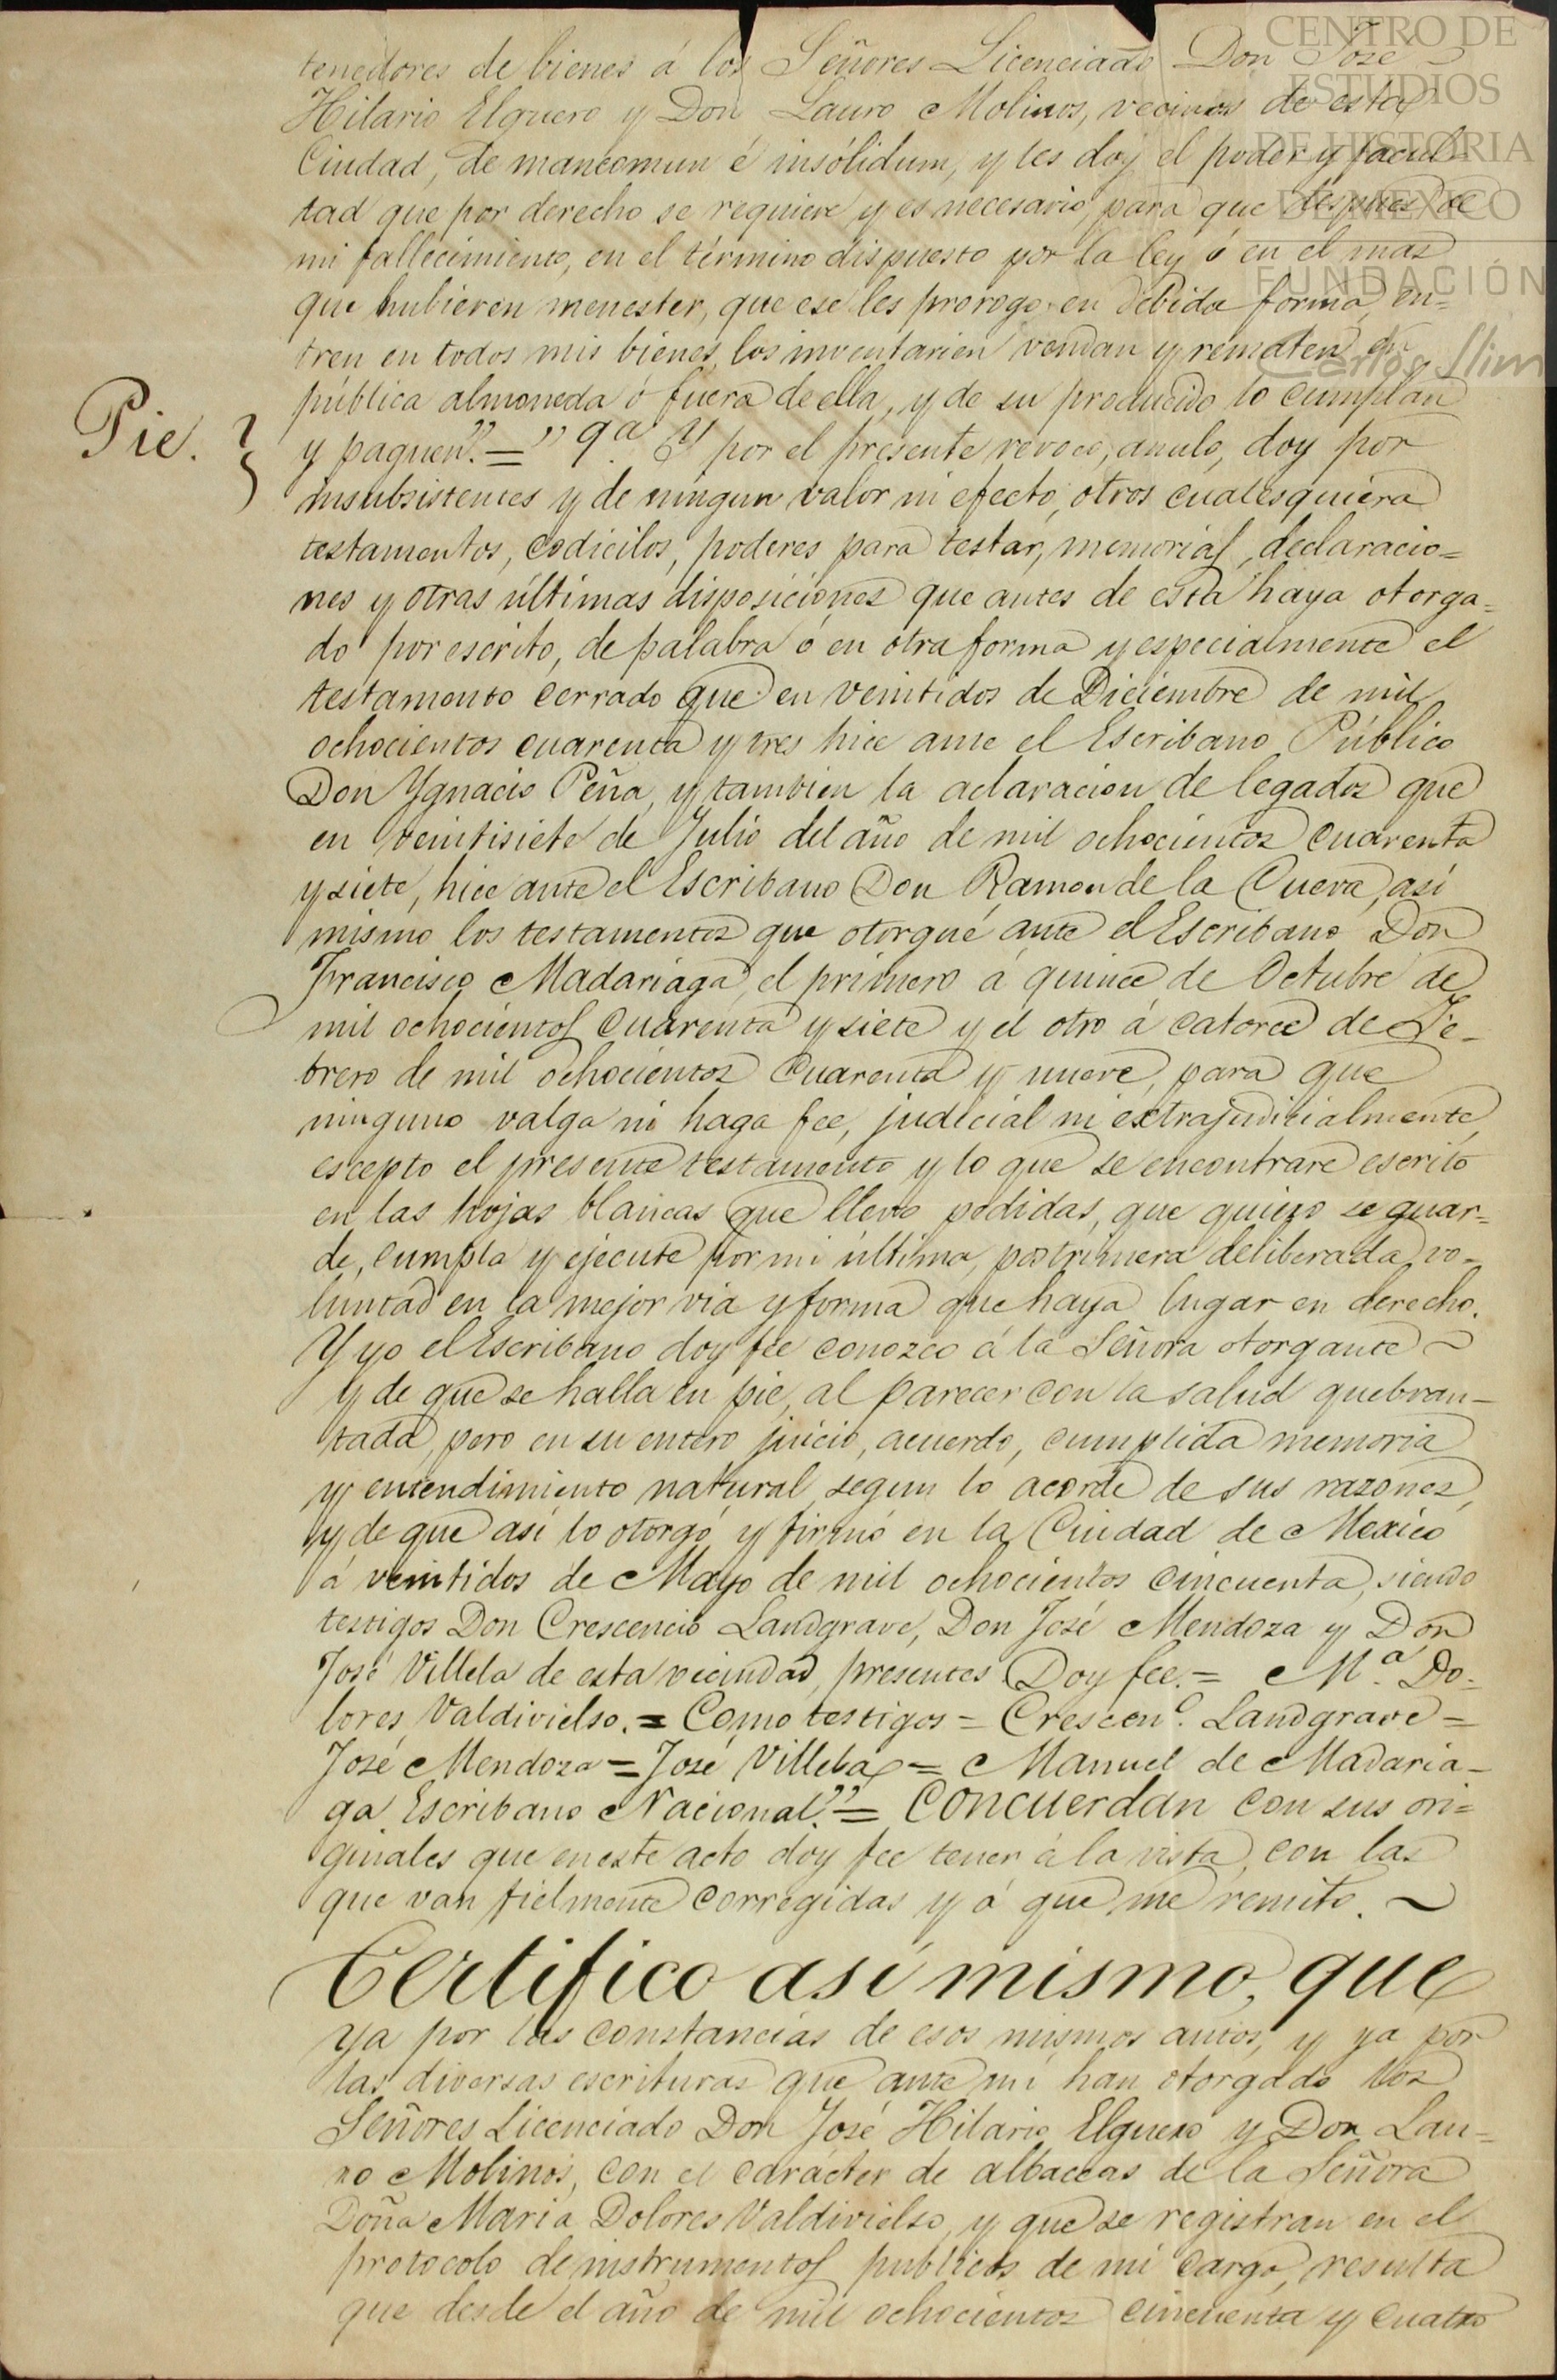 CENTRO DE
ESTUDIOS
DE HISTORIA
DE MEXICO
FUNDACIÓN
Carlos Slim
tenedores de bienes á los Señores Licenciado Don José
Hilario Elguero y Don Lauro Molinos, vecinos de esta
Ciudad, de mancomun é insólidum, y les doy el poder y facul-
tad que por derecho se requiere y es necesario, para que despues de
mi fallecimiento, en el término dispuesto por la ley ó en el mas
que hubieren menester, que ese les prorogo en debida forma, en=
tren en todos mis bienes, los inventarien vendan y rematen en
pública almoneda ó fuera de ella, y de su producido lo cumplan
Pie. y paguen". = " 9a. Y por el presente revoco, anulo, doy por
insubsistentes y de ningun valor ni efecto, otros cualesquiera
testamentos, codicilos, poderes para testar, memorias, declaracio=
nes y otras últimas disposiciones que antes de esta haya otorga=
do por escrito, de palabra ó en otra forma y especialmente el
testamento cerrado que en veintidos de Diciembre de mil
ochocientos cuarenta y tres hice ante el Escribano Público
Don Ygnacio Peña, y tambien la aclaracion de legados que
en veintisiete de Julio del año de mil ochocientos cuarenta
y siete, hice ante el Escribano Don Ramon de la Cueva, asi
mismo los testamentos que otorgué ante el Escribano Don
Francisco Madariaga, el primero á quince de Octubre de
mil ochocientos cuarenta y siete y el otro á catorce de Fe-
brero de mil ochocientos cuarenta y nueve, para que
ninguno valga ni haga fee, judicial ni extrajudicialmente,
escepto el presente testamento y lo que se encontrare escrito
en las hojas blancas que llevo pedidas, que quiero se guar=
de, cumpla y ejecute por mi última, postrimera deliberada vo-
luntad en la mejor via y forma que haya lugar en derecho.
Y yo el Escribano doy fee conozco á la Señora otorgante ~
y de que se halla en pie, al parecer con la salud quebran-
tada, pero en su entero juicio, acuerdo, cumplida memoria
y entendimiento natural, segun lo acorde de sus razones,
y de que asi lo otorgó y firmó en la Ciudad de Mexico
á veintidos de Mayo de mil ochocientos cincuenta, siendo
testigos Don Crescencio Landgrave, Don José Mendoza y Don
José Villela de esta vecindad, presentes Doy fee. = Ma. Do-
lores Valdivielso. = Como testigos = Crescen.o Landgrave =
José Mendoza = José Villela = Manuel de Madaria-
ga Escribano Nacional." = Concuerdan con sus ori=
ginales que en este acto doy fee tener á la vista, con las
que van fielmente corregidas y á que me remito. ~
Certifico asi mismo, que
ya por las constancias de esos mismos autos, y ya por
las diversas escrituras que ante mi han otorgado los
Señores Licenciado Don José Hilario Elguero y Don Lau=
ro Molinos, con el carácter de albaceas de la Señora
Doña Maria Dolores Valdivielso, y que se registran en el
protocolo de instrumentos publicos de mi cargo, resulta
que desde el año de mil ochocientos cincuenta y cuatro